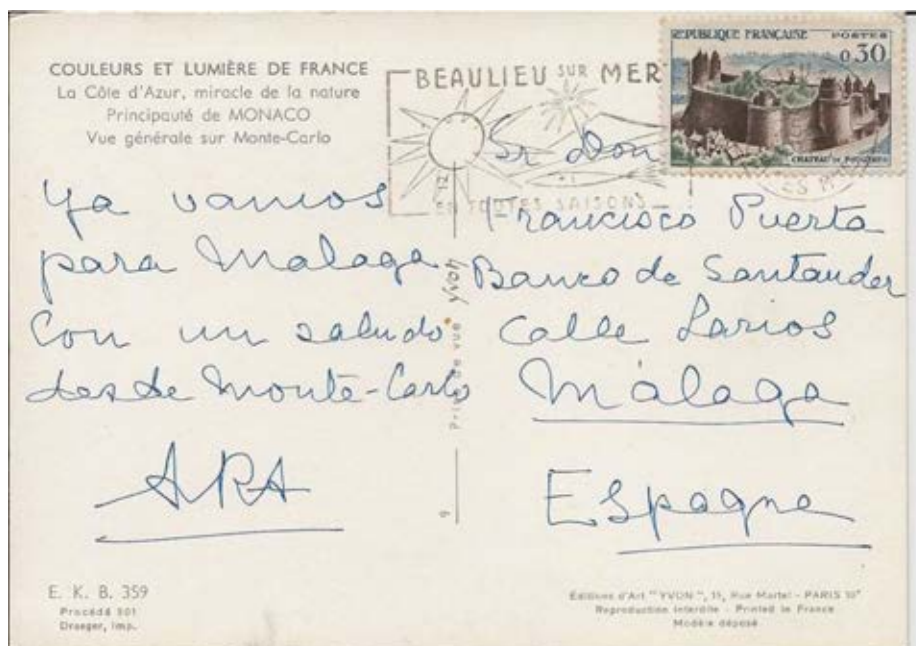 COULEURS ET LUMIÈRE DE FRANCE
La Côte d'Azur, miracle de la nature
Principauté de MONACO
Vue générale sur Monte-Carlo
BEAULIEU SUR MER
EN TOUTES SAISONS
REPUBLIQUE FRANÇAISE POSTES
0,30
CHATEAU DE FOUGÈRES
Ya vamos
para Malaga
Con un saludo
desde Monte-Carlo
ARA
Sr Don
Francisco Puerta
Banco de Santander
Calle Larios
Málaga
Espagne
9 Prise de vue Yvon
E. K. B. 359
Procédé 301
Draeger, Imp.
Editions d'Art "YVON", 15, Rue Martel - PARIS 10e
Reproduction interdite - Printed in France
Modèle déposé